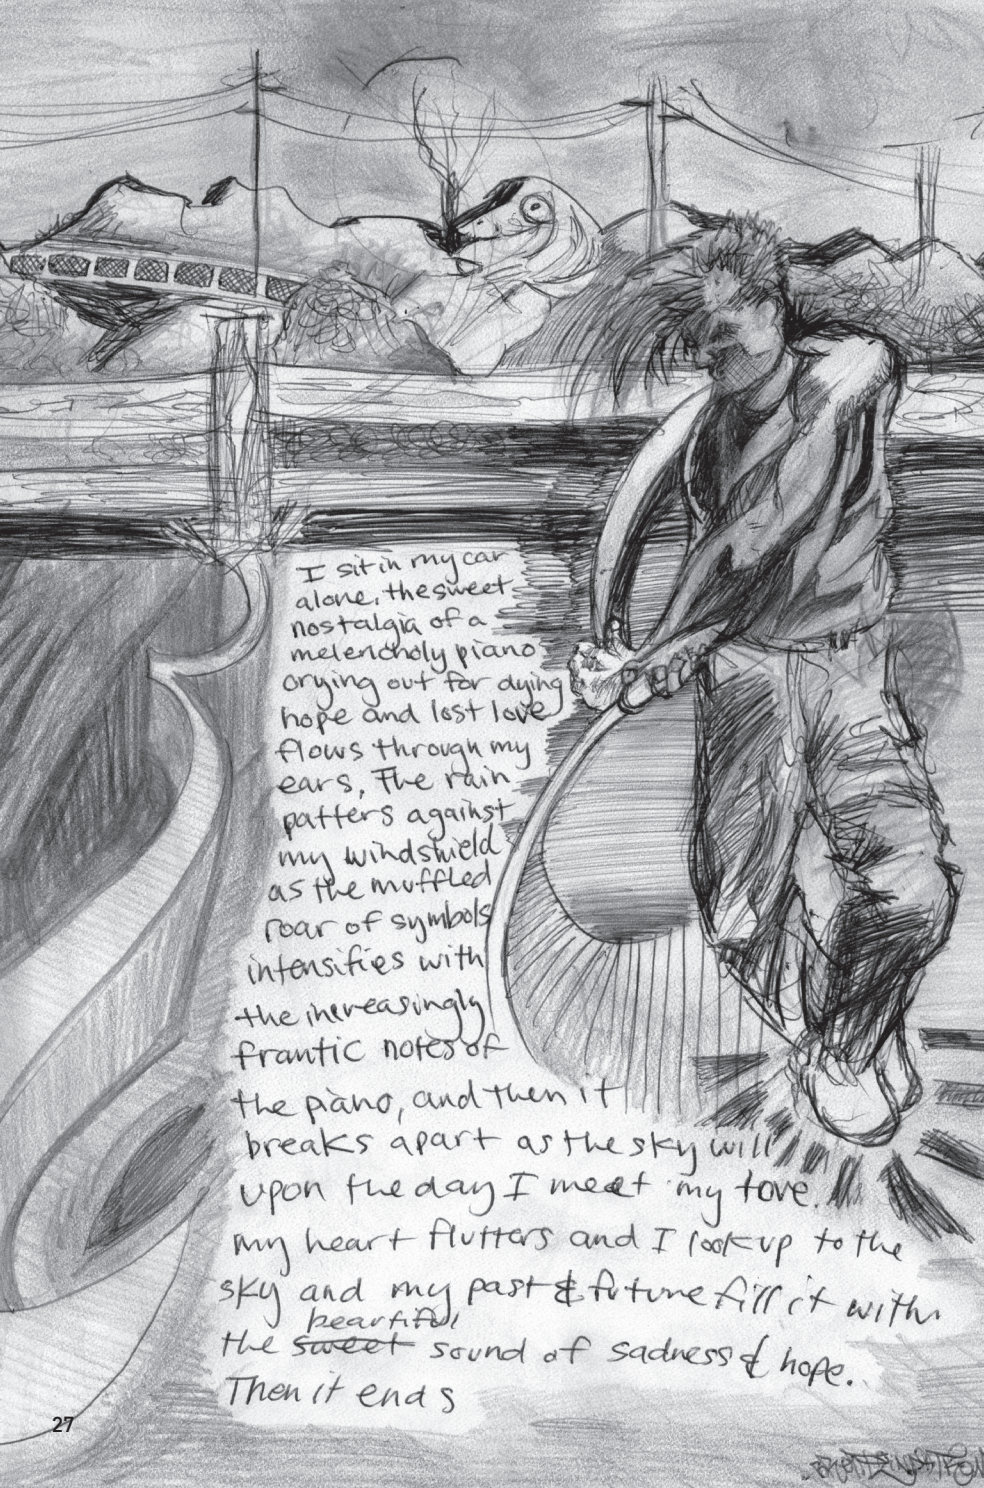 I sit in my car
alone, the sweet
nostalgia of a
melencholy piano
crying out for dying
hope and lost love
flows through my
ears, The rain
patters against
my windshield
as the muffled
roar of symbols
intensifies with
the increasingly
frantic notes of
the piano, and then it
breaks apart as the sky will
upon the day I meet my love.
my heart flutters and I look up to the
sky and my past & future fill it with
beautiful
the sweet sound of sadness & hope.
Then it ends
27